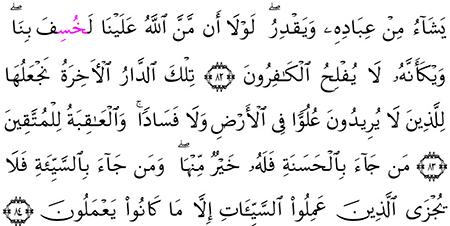 يَشَآءُ مِنْ عِبَادِهِۦ وَيَقْدِرُ ۖ لَوْلَآ أَن مَّنَّ ٱللَّهُ عَلَيْنَا لَخُسِفَ بِنَا ۖ
وَيْكَأَنَّهُۥ لَا يُفْلِحُ ٱلْكَٰفِرُونَ ﴿٨٢﴾ تِلْكَ ٱلدَّارُ ٱلْأَخِرَةُ نَجْعَلُهَا
لِلَّذِينَ لَا يُرِيدُونَ عُلُوًّا فِى ٱلْأَرْضِ وَلَا فَسَادًا ۚ وَٱلْعَٰقِبَةُ لِلْمُتَّقِينَ
﴿٨٣﴾ مَن جَآءَ بِٱلْحَسَنَةِ فَلَهُۥ خَيْرٌ مِّنْهَا ۖ وَمَن جَآءَ بِٱلسَّيِّئَةِ فَلَا
يُجْزَى ٱلَّذِينَ عَمِلُوا۟ ٱلسَّيِّـَٔاتِ إِلَّا مَا كَانُوا۟ يَعْمَلُونَ ﴿٨٤﴾